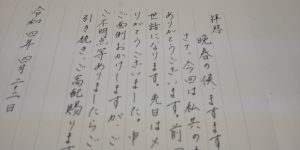 拝啓
晩春の候ますます
さて、今回は私共の
ありがとうございます。前
世話になります。先日はメ
りがとうございました。申
ご面倒おかけしますが、ご
ご不明点等ありましたらご
引き続きご高配賜ります
令和四年四月二十二日